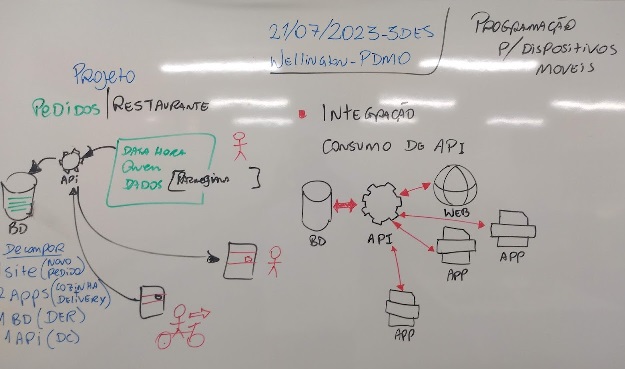 21/07/2023-3DES
Wellington-PDMO
PROGRAMAÇÃO
P/DISPOSITIVOS
MOVEIS
Projeto
PEDIDOS/RESTAURANTE
DATA HORA
Quem
DADOS
API
BD
Decompor
site (NOVO PEDIDO)
2 Apps (COZINHA DELIVERY)
1 BD (DER)
1 API (DC)
INTEGRAÇÃO
CONSUMO DE API
BD
API
WEB
APP
APP
APP